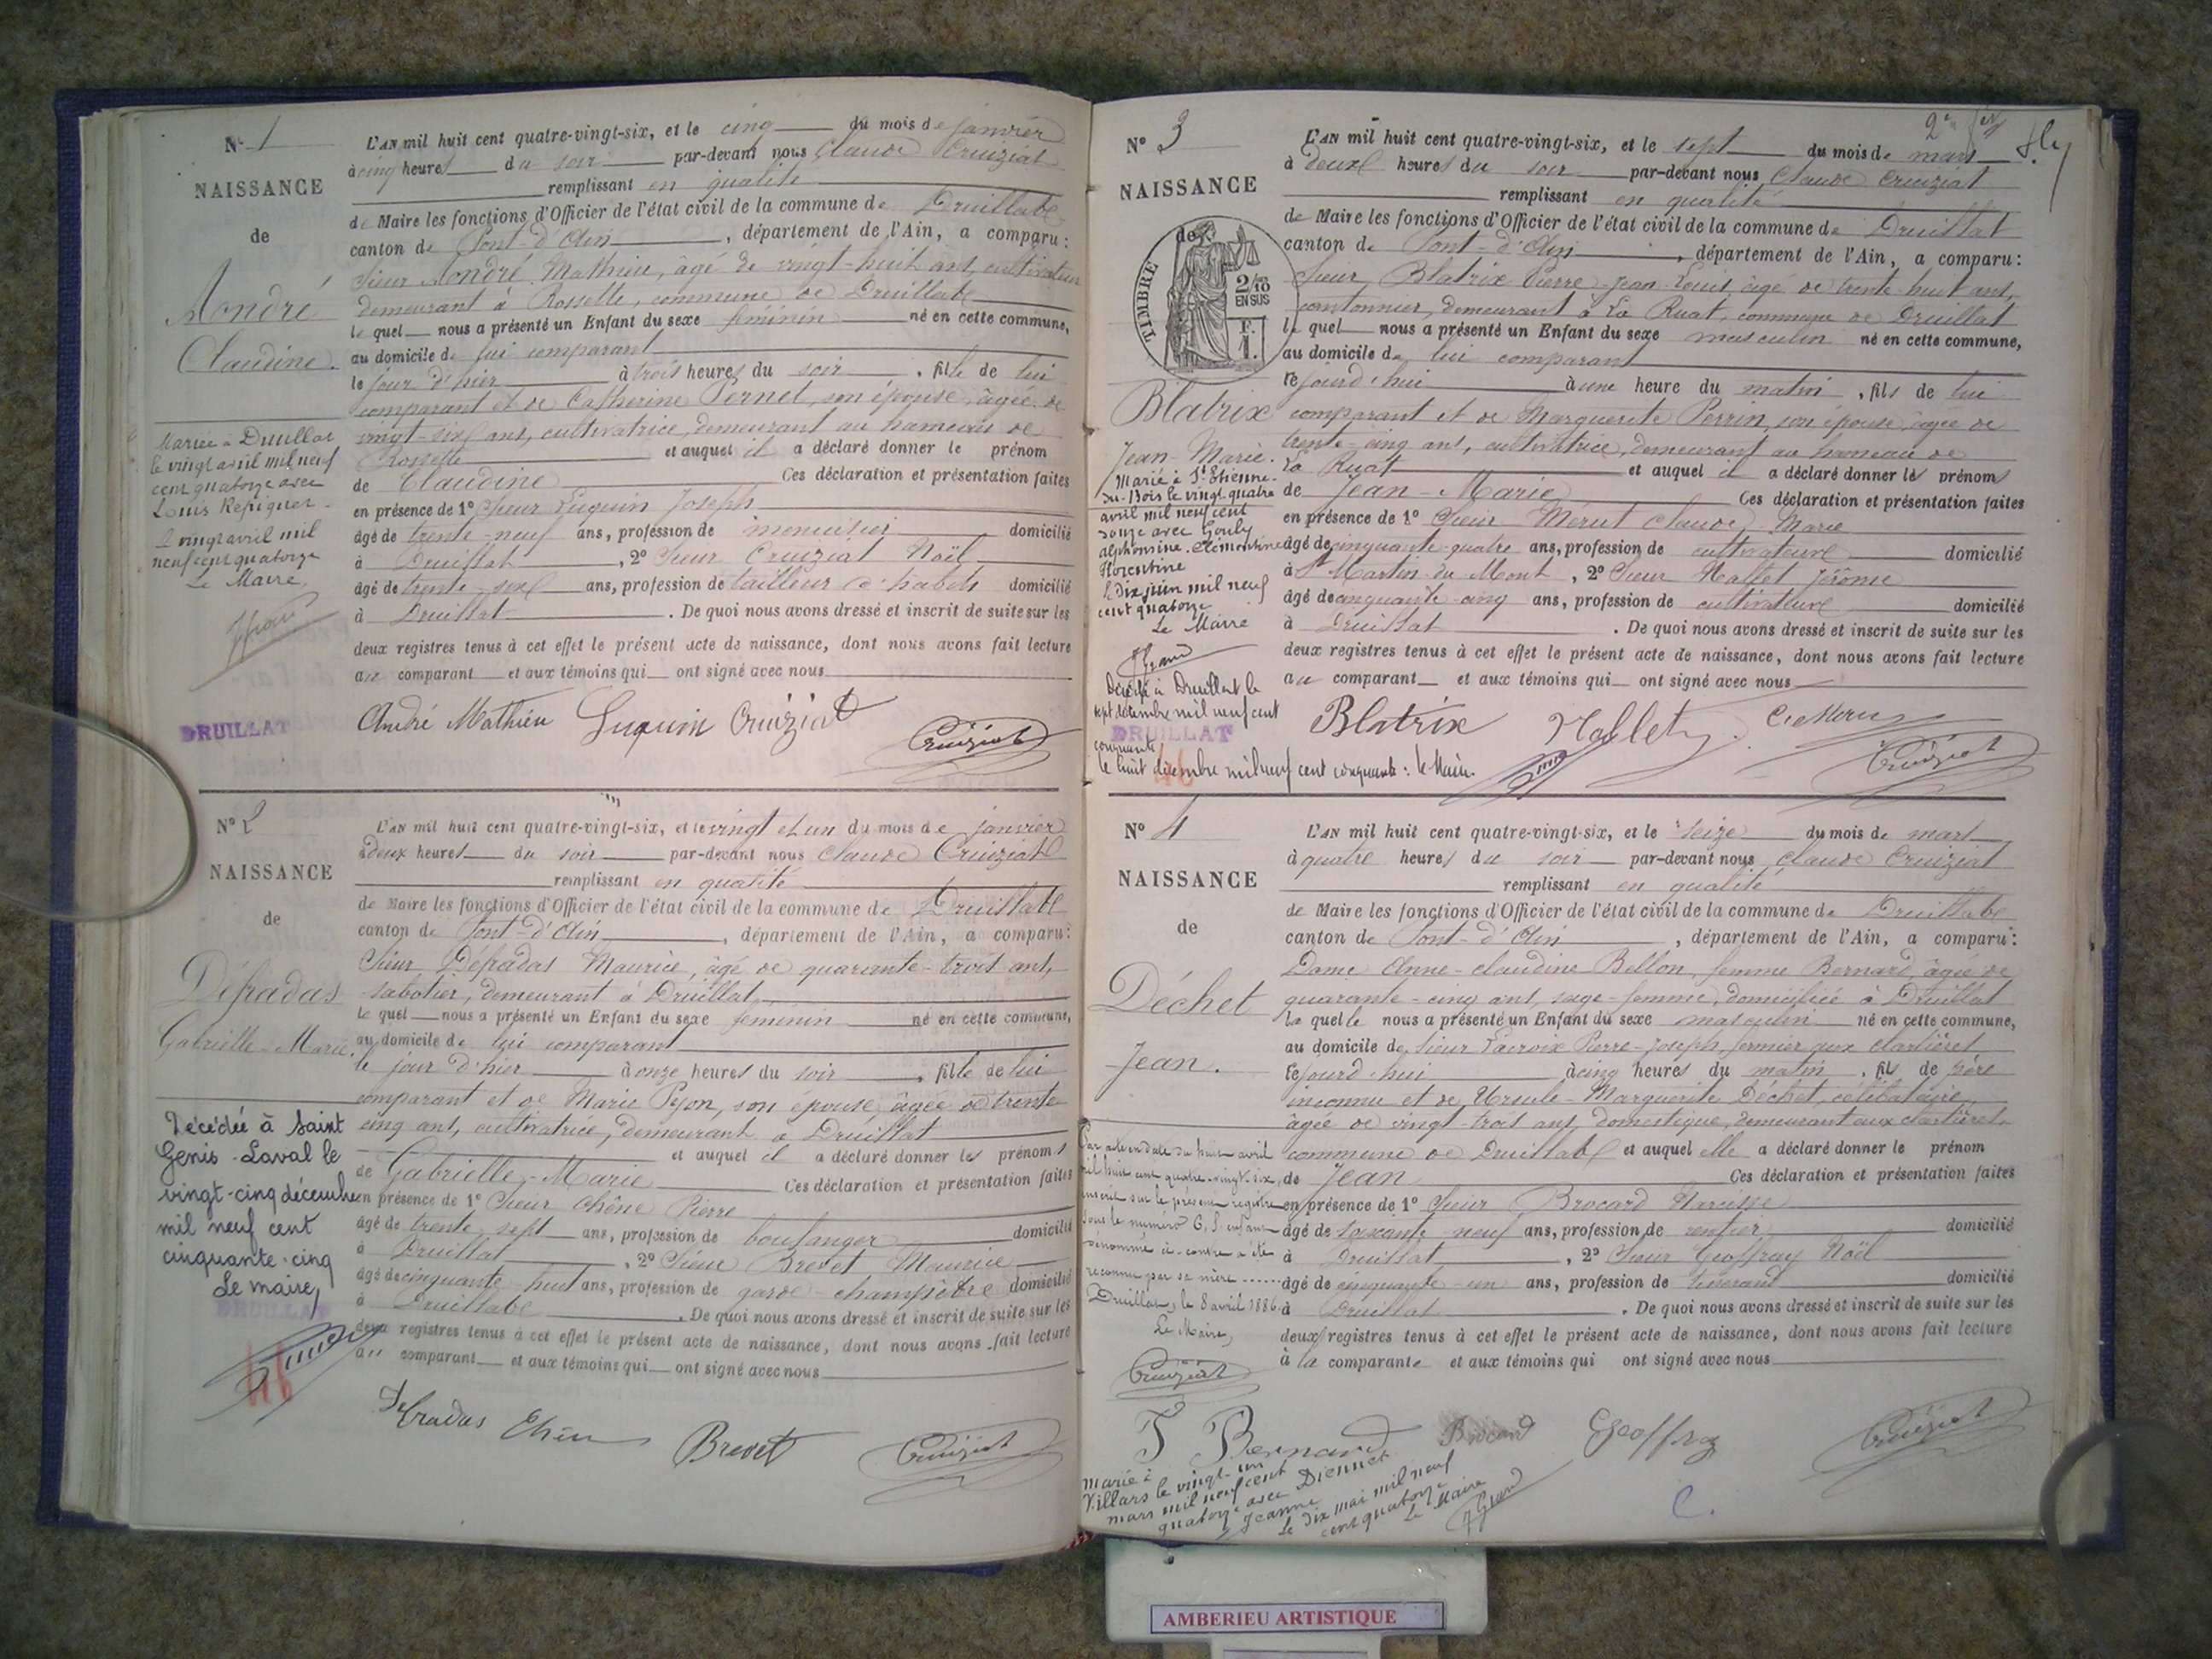 N° 1
NAISSANCE
de
André
Claudine.
Mariée à Druillat
le vingt avril mil neuf
cent quatorze avec
Louis
vingt avril mil
neuf cent quatorze
Le Maire
DRUILLAT
L'AN mil huit cent quatre-vingt-six, et le cinq du mois de janvier
à cinq heures du soir par-devant nous Claude Cruiziat
remplissant en qualité
de Maire les fonctions d'Officier de l'état civil de la commune de Druillat
canton de Pont-d'Ain, département de l'Ain, a comparu:
Sieur André Mathieu, âgé de vingt-huit ans, cultivateur
demeurant à Rossette, commune de Druillat
le quel nous a présenté un Enfant du sexe féminin né en cette commune,
au domicile de lui comparant
le jour d'hier à trois heures du soir, fille de lui
comparant et de Catherine Pernet, son épouse, âgée de
vingt-six ans, cultivatrice, demeurant au hameau de
Rossette et auquel il a déclaré donner le prénom
de Claudine Ces déclaration et présentation faites
en présence de 1° Sieur Luquin Joseph
âgé de trente-neuf ans, profession de menuisier domicilié
à Druillat, 2° Sieur Cruiziat Noël
âgé de trente-six ans, profession de tailleur d'habits domicilié
à Druillat. De quoi nous avons dressé et inscrit de suite sur les
deux registres tenus à cet effet le présent acte de naissance, dont nous avons fait lecture
au comparant et aux témoins qui ont signé avec nous
André Mathieu Luquin Cruiziat
Cruiziat
N° 2
NAISSANCE
de
Défradas
Gabrielle-Marie.
Décédée à Saint
Genis-Laval le
vingt-cinq décembre
mil neuf cent
cinquante-cinq
Le maire,
DRUILLAT
46
L'AN mil huit cent quatre-vingt-six, et le vingt et un du mois de janvier
à deux heures du soir par-devant nous Claude Cruiziat
remplissant en qualité
de Maire les fonctions d'Officier de l'état civil de la commune de Druillat
canton de Pont-d'Ain, département de l'Ain, a comparu:
Sieur Défradas Maurice, âgé de quarante-trois ans,
sabotier, demeurant à Druillat
le quel nous a présenté un Enfant du sexe féminin né en cette commune,
au domicile de lui comparant
le jour d'hier à onze heures du soir, fille de lui
comparant et de Marie Pyon, son épouse, âgée de trente
cinq ans, cultivatrice, demeurant à Druillat
et auquel il a déclaré donner les prénoms
de Gabrielle-Marie Ces déclaration et présentation faites
en présence de 1° Sieur Chêne Pierre
âgé de trente-sept ans, profession de boulanger domicilié
à Druillat, 2° Sieur Brevet Maurice
âgé de cinquante-huit ans, profession de garde-champêtre domicilié
à Druillat. De quoi nous avons dressé et inscrit de suite sur les
deux registres tenus à cet effet le présent acte de naissance, dont nous avons fait lecture
au comparant et aux témoins qui ont signé avec nous
Défradas Chêne Brevet Cruiziat
N° 3
NAISSANCE
de
TIMBRE
2/10
EN SUS
F.
1.
Blatrix
Jean-Marie.
Marié à St Etienne-
du-Bois le vingt-quatre
avril mil neuf cent
avec Gouly
Alphonsine-Clémentine
Florentine
dix juin mil neuf
cent quatorze
Le Maire
JGrand
Décédé à Druillat le
sept décembre mil neuf cent
DRUILLAT
cinquante
le huit décembre mil neuf cent cinquante: le Maire.
46
L'AN mil huit cent quatre-vingt-six, et le sept du mois de mars
à deux heures du soir par-devant nous Claude Cruiziat
remplissant en qualité
de Maire les fonctions d'Officier de l'état civil de la commune de Druillat
canton de Pont-d'Ain, département de l'Ain, a comparu:
Sieur Blatrix Pierre-Jean-Louis, âgé de trente-huit ans,
cantonnier, demeurant à La Ruat, commune de Druillat
le quel nous a présenté un Enfant du sexe masculin né en cette commune,
au domicile de lui comparant
ce jourd'hui à une heure du matin, fils de lui
comparant et de Marguerite Perrin, son épouse, âgée de
trente-cinq ans, cultivatrice, demeurant au hameau de
La Ruat et auquel il a déclaré donner les prénoms
de Jean-Marie Ces déclaration et présentation faites
en présence de 1° Sieur Mérut Claude-Marie
âgé de cinquante-quatre ans, profession de cultivateur domicilié
à St Martin du Mont, 2° Sieur Hallet Jérôme
âgé de cinquante-cinq ans, profession de cultivateur domicilié
à Druillat. De quoi nous avons dressé et inscrit de suite sur les
deux registres tenus à cet effet le présent acte de naissance, dont nous avons fait lecture
au comparant et aux témoins qui ont signé avec nous
Blatrix Hallet
Cruiziat
N° 4
NAISSANCE
de
Déchet
Jean.
Par acte en date du huit avril
mil huit cent quatre-vingt-six,
inscrit sur le présent registre
sous le numéro 6, l'enfant
dénommé ci-contre a été
reconnu par sa mère
Druillat, le 8 avril 1886
Le Maire,
Cruiziat
L'AN mil huit cent quatre-vingt-six, et le seize du mois de mars
à quatre heures du soir par-devant nous Claude Cruiziat
remplissant en qualité
de Maire les fonctions d'Officier de l'état civil de la commune de Druillat
canton de Pont-d'Ain, département de l'Ain, a comparu:
Dame Anne-Claudine Bellon, femme Bernard, âgée de
quarante-cinq ans, sage-femme, domiciliée à Druillat
la quelle nous a présenté un Enfant du sexe masculin né en cette commune,
au domicile de Sieur Lacroix Pierre-Joseph, fermier aux
ce jourd'hui à cinq heures du matin, fils de père
inconnu et de Ursule-Marguerite Déchet, célibataire,
âgée de vingt-trois ans, domestique, demeurant aux
commune de Druillat et auquel elle a déclaré donner le prénom
de Jean Ces déclaration et présentation faites
en présence de 1° Sieur Brocard Narcisse
âgé de soixante-neuf ans, profession de rentier domicilié
à Druillat, 2° Sieur Geoffray Noël
âgé de cinquante-un ans, profession de tisserand domicilié
à Druillat. De quoi nous avons dressé et inscrit de suite sur les
deux registres tenus à cet effet le présent acte de naissance, dont nous avons fait lecture
à la comparante et aux témoins qui ont signé avec nous
Bernard Brocard Geoffray Cruiziat
Marié à
Villars le vingt-un
mars mil neuf cent
quatorze avec Diennet
Jeanne
Le dix mai mil neuf
cent quatorze
Le Maire
JGrand
C.
AMBERIEU ARTISTIQUE